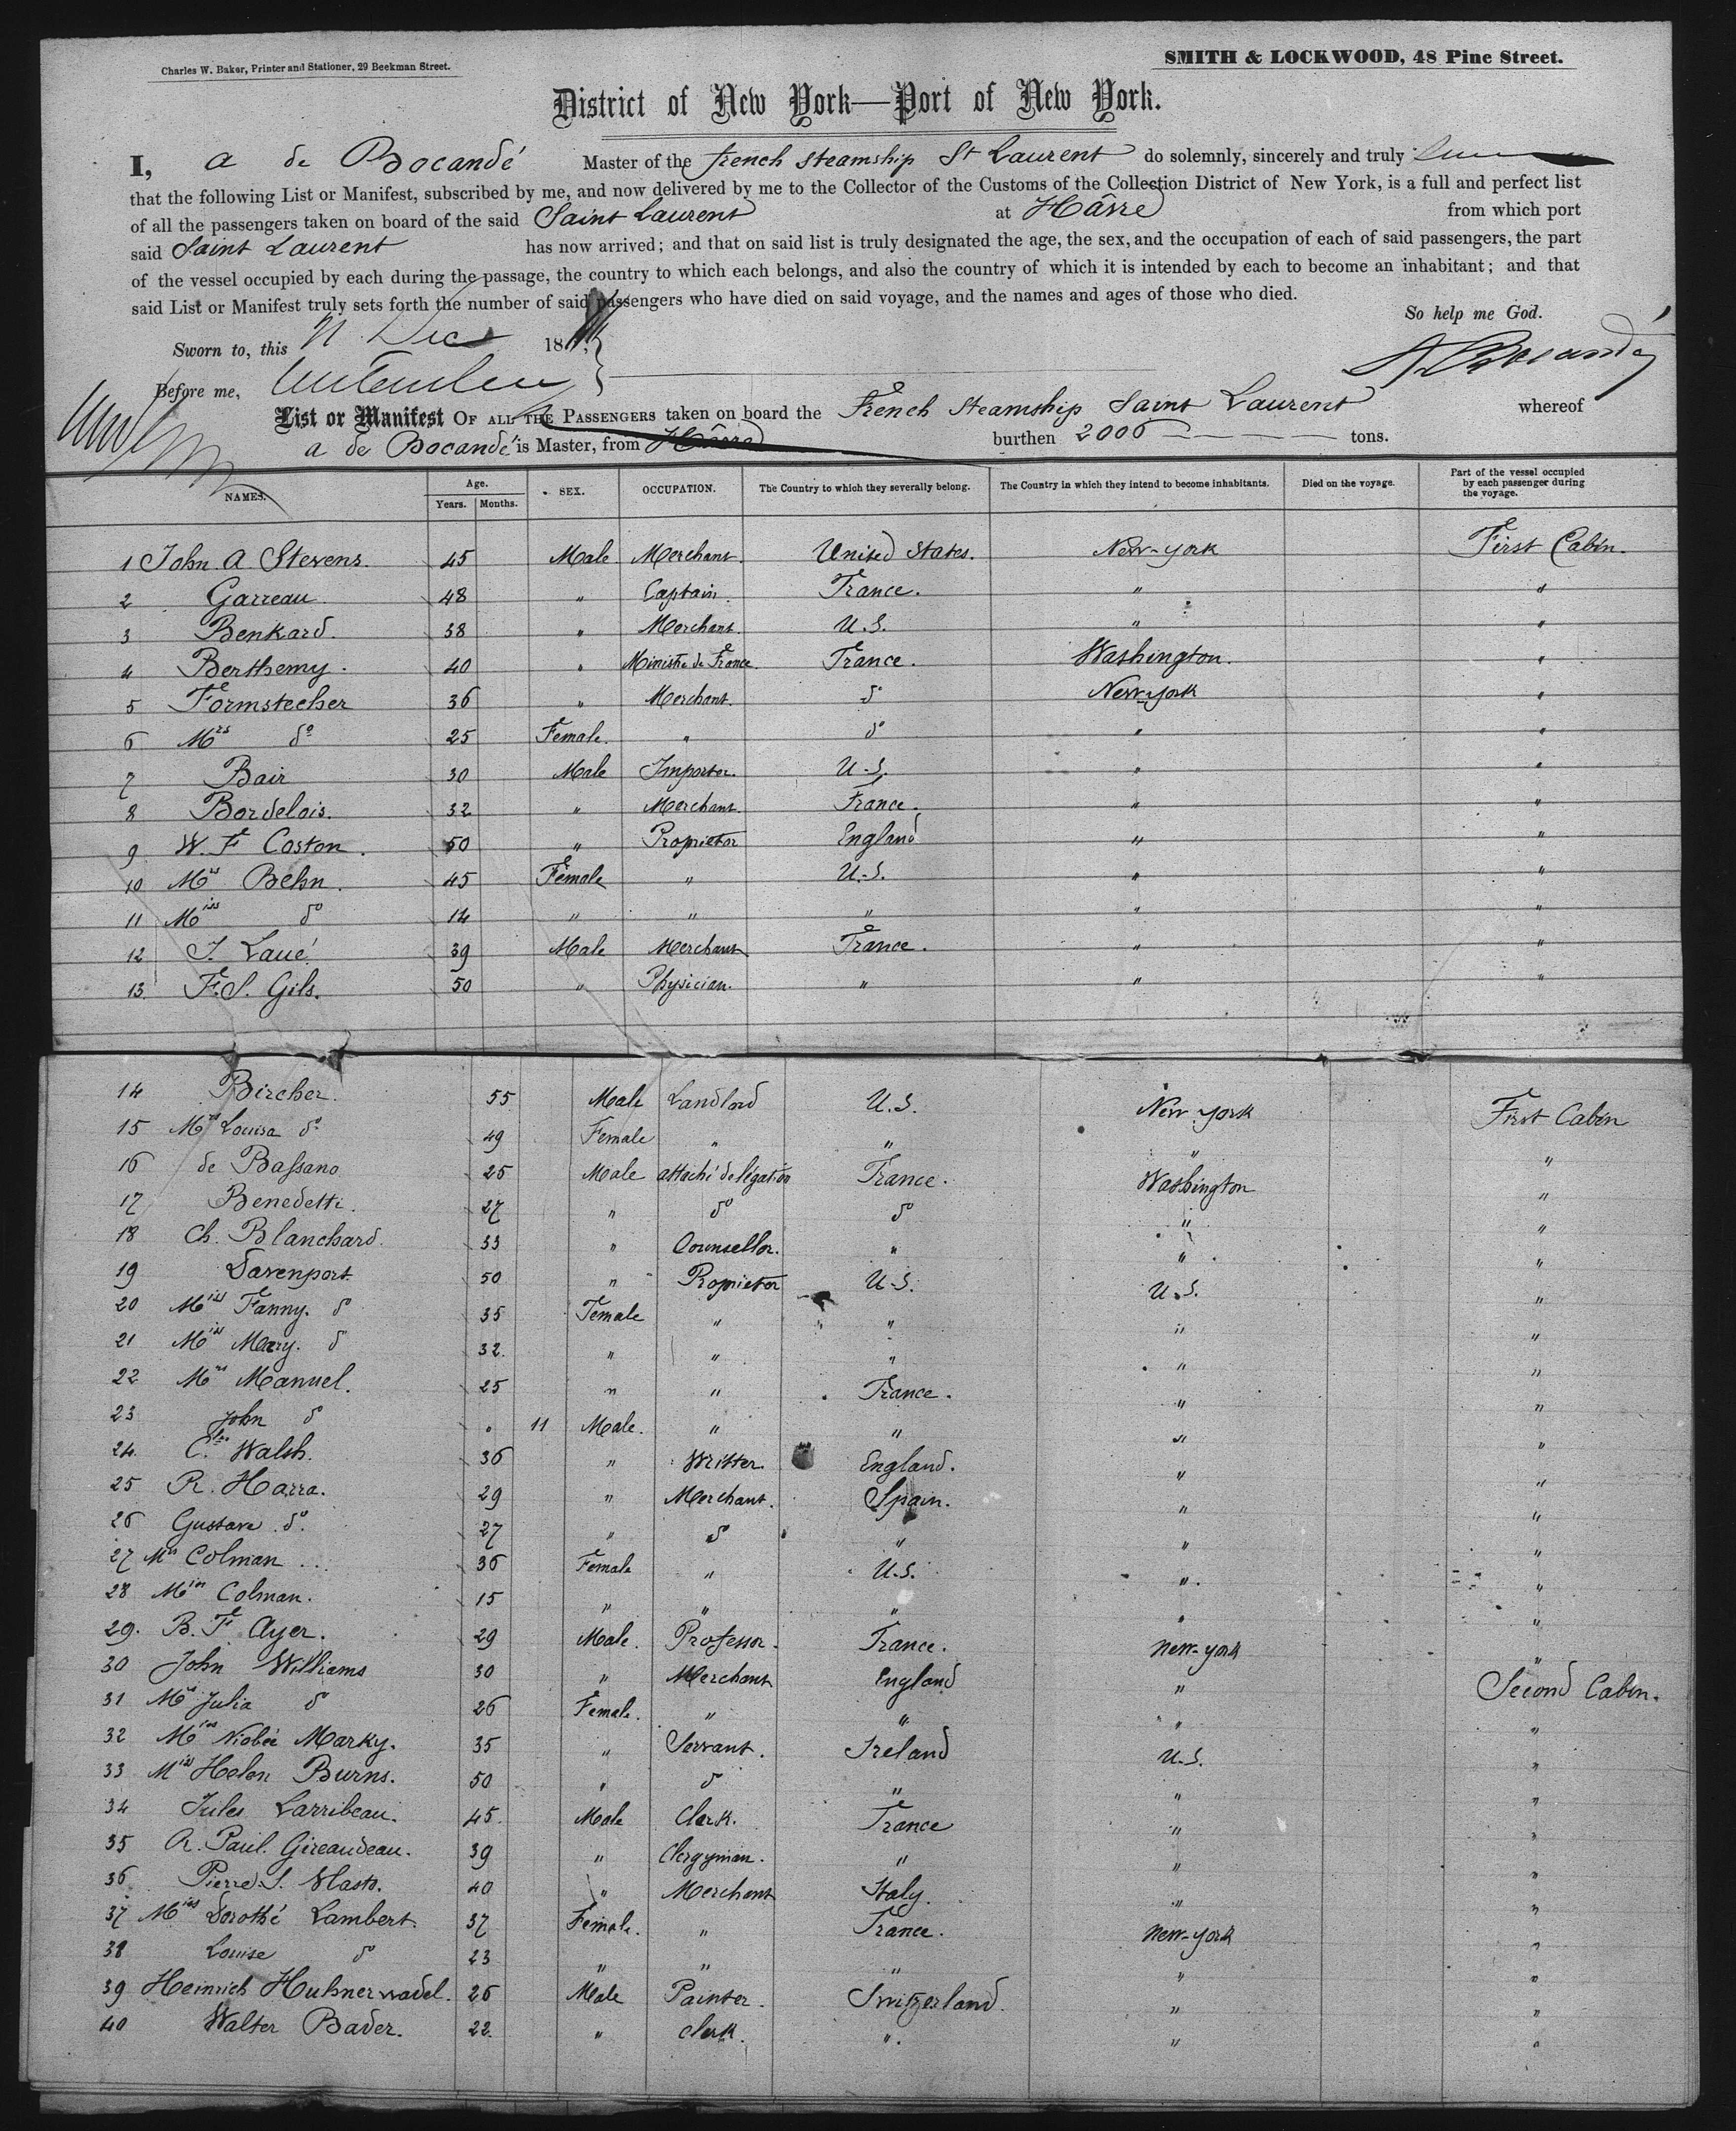 Charles W. Baker, Printer and Stationer, 29 Beekman Street.
SMITH & LOCKWOOD, 48 Pine Street.
District of New York—Port of New York.
I, A de Bocandé Master of the french steamship St Laurent do solemnly, sincerely and truly
that the following List or Manifest, subscribed by me, and now delivered by me to the Collector of the Customs of the Collection District of New York, is a full and perfect list
of all the passengers taken on board of the said Saint Laurent at Hâvre from which port
said Saint Laurent has now arrived; and that on said list is truly designated the age, the sex, and the occupation of each of said passengers, the part
of the vessel occupied by each during the passage, the country to which each belongs, and also the country of which it is intended by each to become an inhabitant; and that
said List or Manifest truly sets forth the number of said passengers who have died on said voyage, and the names and ages of those who died.
So help me God.
Sworn to, this Dec 18
Before me,
List or Manifest OF ALL THE PASSENGERS taken on board the French Steamship Saint Laurent whereof
a de Bocandé is Master, from Hâvre burthen 2000 tons.
NAMES. Age. Years. Months. SEX. OCCUPATION. The Country to which they severally belong. The Country in which they intend to become inhabitants. Died on the voyage. Part of the vessel occupied by each passenger during the voyage.
1 John A Stevens. 45 Male Merchant. United States. New-York First Cabin.
2 Garreau 48 " Captain. France. " "
3 Benkard. 38 " Merchant. U.S. " "
4 Berthemy. 40 " Ministre de France France. Washington. "
5 Formstecher 36 " Merchant. do New-York "
6 Mrs do 25 Female. " do " "
7 Bair 30 Male Importer. U.S. " "
8 Bordelois. 32 " Merchant. France. " "
9 W. F Coston. 50 " Proprietor England " "
10 Mrs Behn. 45 Female " U.S. " "
11 Miss do 14 " " " " "
12 J. Laué 39 Male Merchant France. " "
13 F. S. Gils. 50 " Physician. " " "
14 Bircher. 55 Male Landlord U.S. New York First Cabin
15 Mrs Louisa do 49 Female " " " "
16 de Bassano 25 Male attaché de légation France. Washington "
17 Benedetti. 27 " do do " "
18 Ch. Blanchard. 33 " Counsellor. " " "
19 Davenport 50 " Proprietor U.S. U.S. "
20 Miss Fanny. do 35 Female " " " "
21 Miss Mary. do 32. " " " " "
22 Mrs Manuel. 25 " " France. " "
23 John do 11 Male. " " " "
24. Walsh. 36 " Writter. England. " "
25 R. Harra. 29 " Merchant. Spain. " "
26 Gustave do. 27 " do " " "
27 Mrs Colman 36 Female " U.S. " "
28 Miss Colman. 15 " " " " "
29. B. F Ayer. 29 Male. Professor. France. New-York "
30 John Williams 30 " Merchant England " Second Cabin.
31 Mrs Julia do 26 Female. " " " "
32 Miss Niobée Marky. 35 " Servant. Ireland U.S. "
33 Miss Helen Burns. 50 " do " " "
34 Jules Larribeau. 45. Male Clerk. France " "
35 A. Paul. Gireaudeau. 39 " Clergyman. " " "
36 Pierre. S. 40 " Merchant Italy. " "
37 Miss Dorothé Lambert. 37 Female. " France. New-York "
38 Louise do 23 " " " " "
39 Heinrich Huhnerwadel. 26 Male Painter. Switzerland. " "
40 Walter Bader. 22. " Clerk. " " "